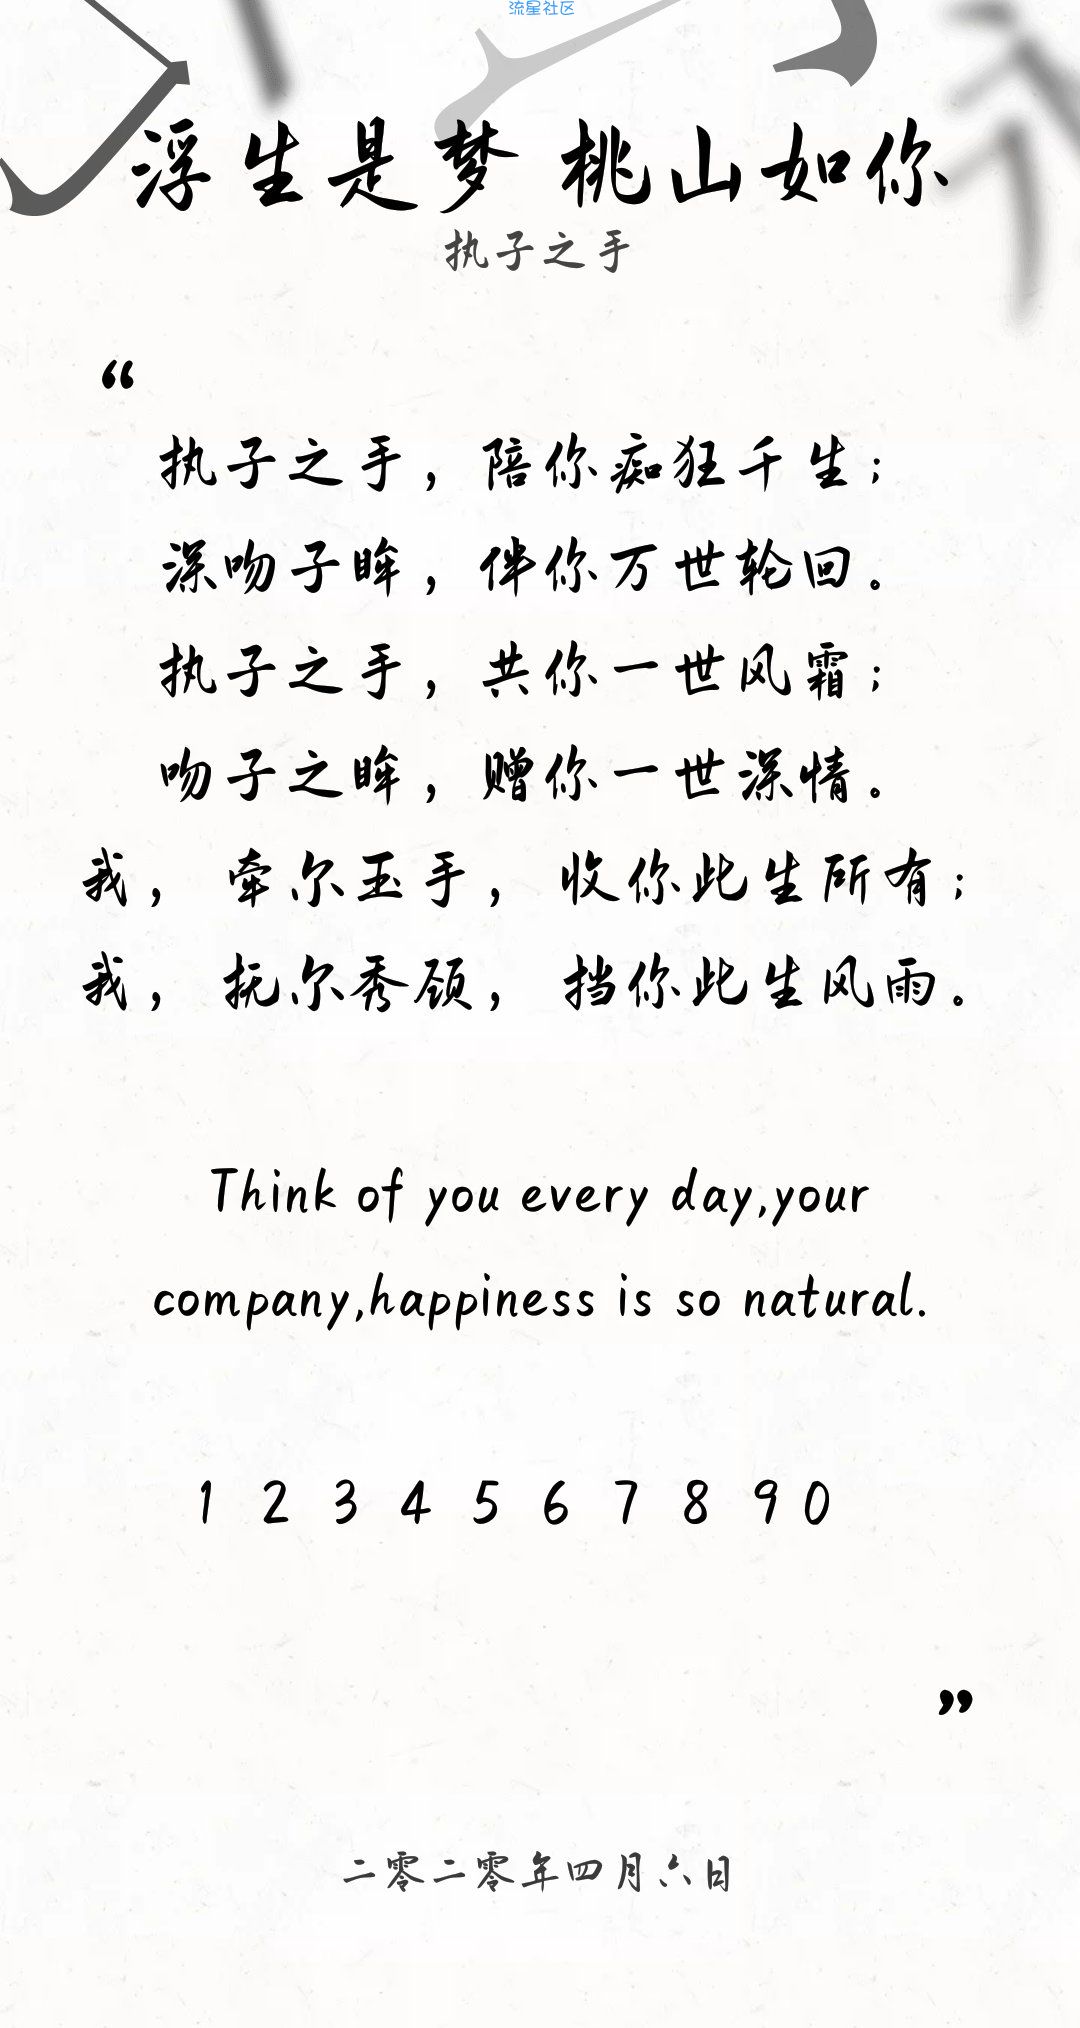 流星社区
浮生是梦 桃山如你
执子之手
“
执子之手，陪你痴狂千生；
深吻子眸，伴你万世轮回。
执子之手，共你一世风霜；
吻子之眸，赠你一世深情。
我， 牵尔玉手， 收你此生所有；
我， 抚尔秀颀， 挡你此生风雨。
Think of you every day,your
company,happiness is so natural.
1 2 3 4 5 6 7 8 9 0
”
二零二零年四月六日